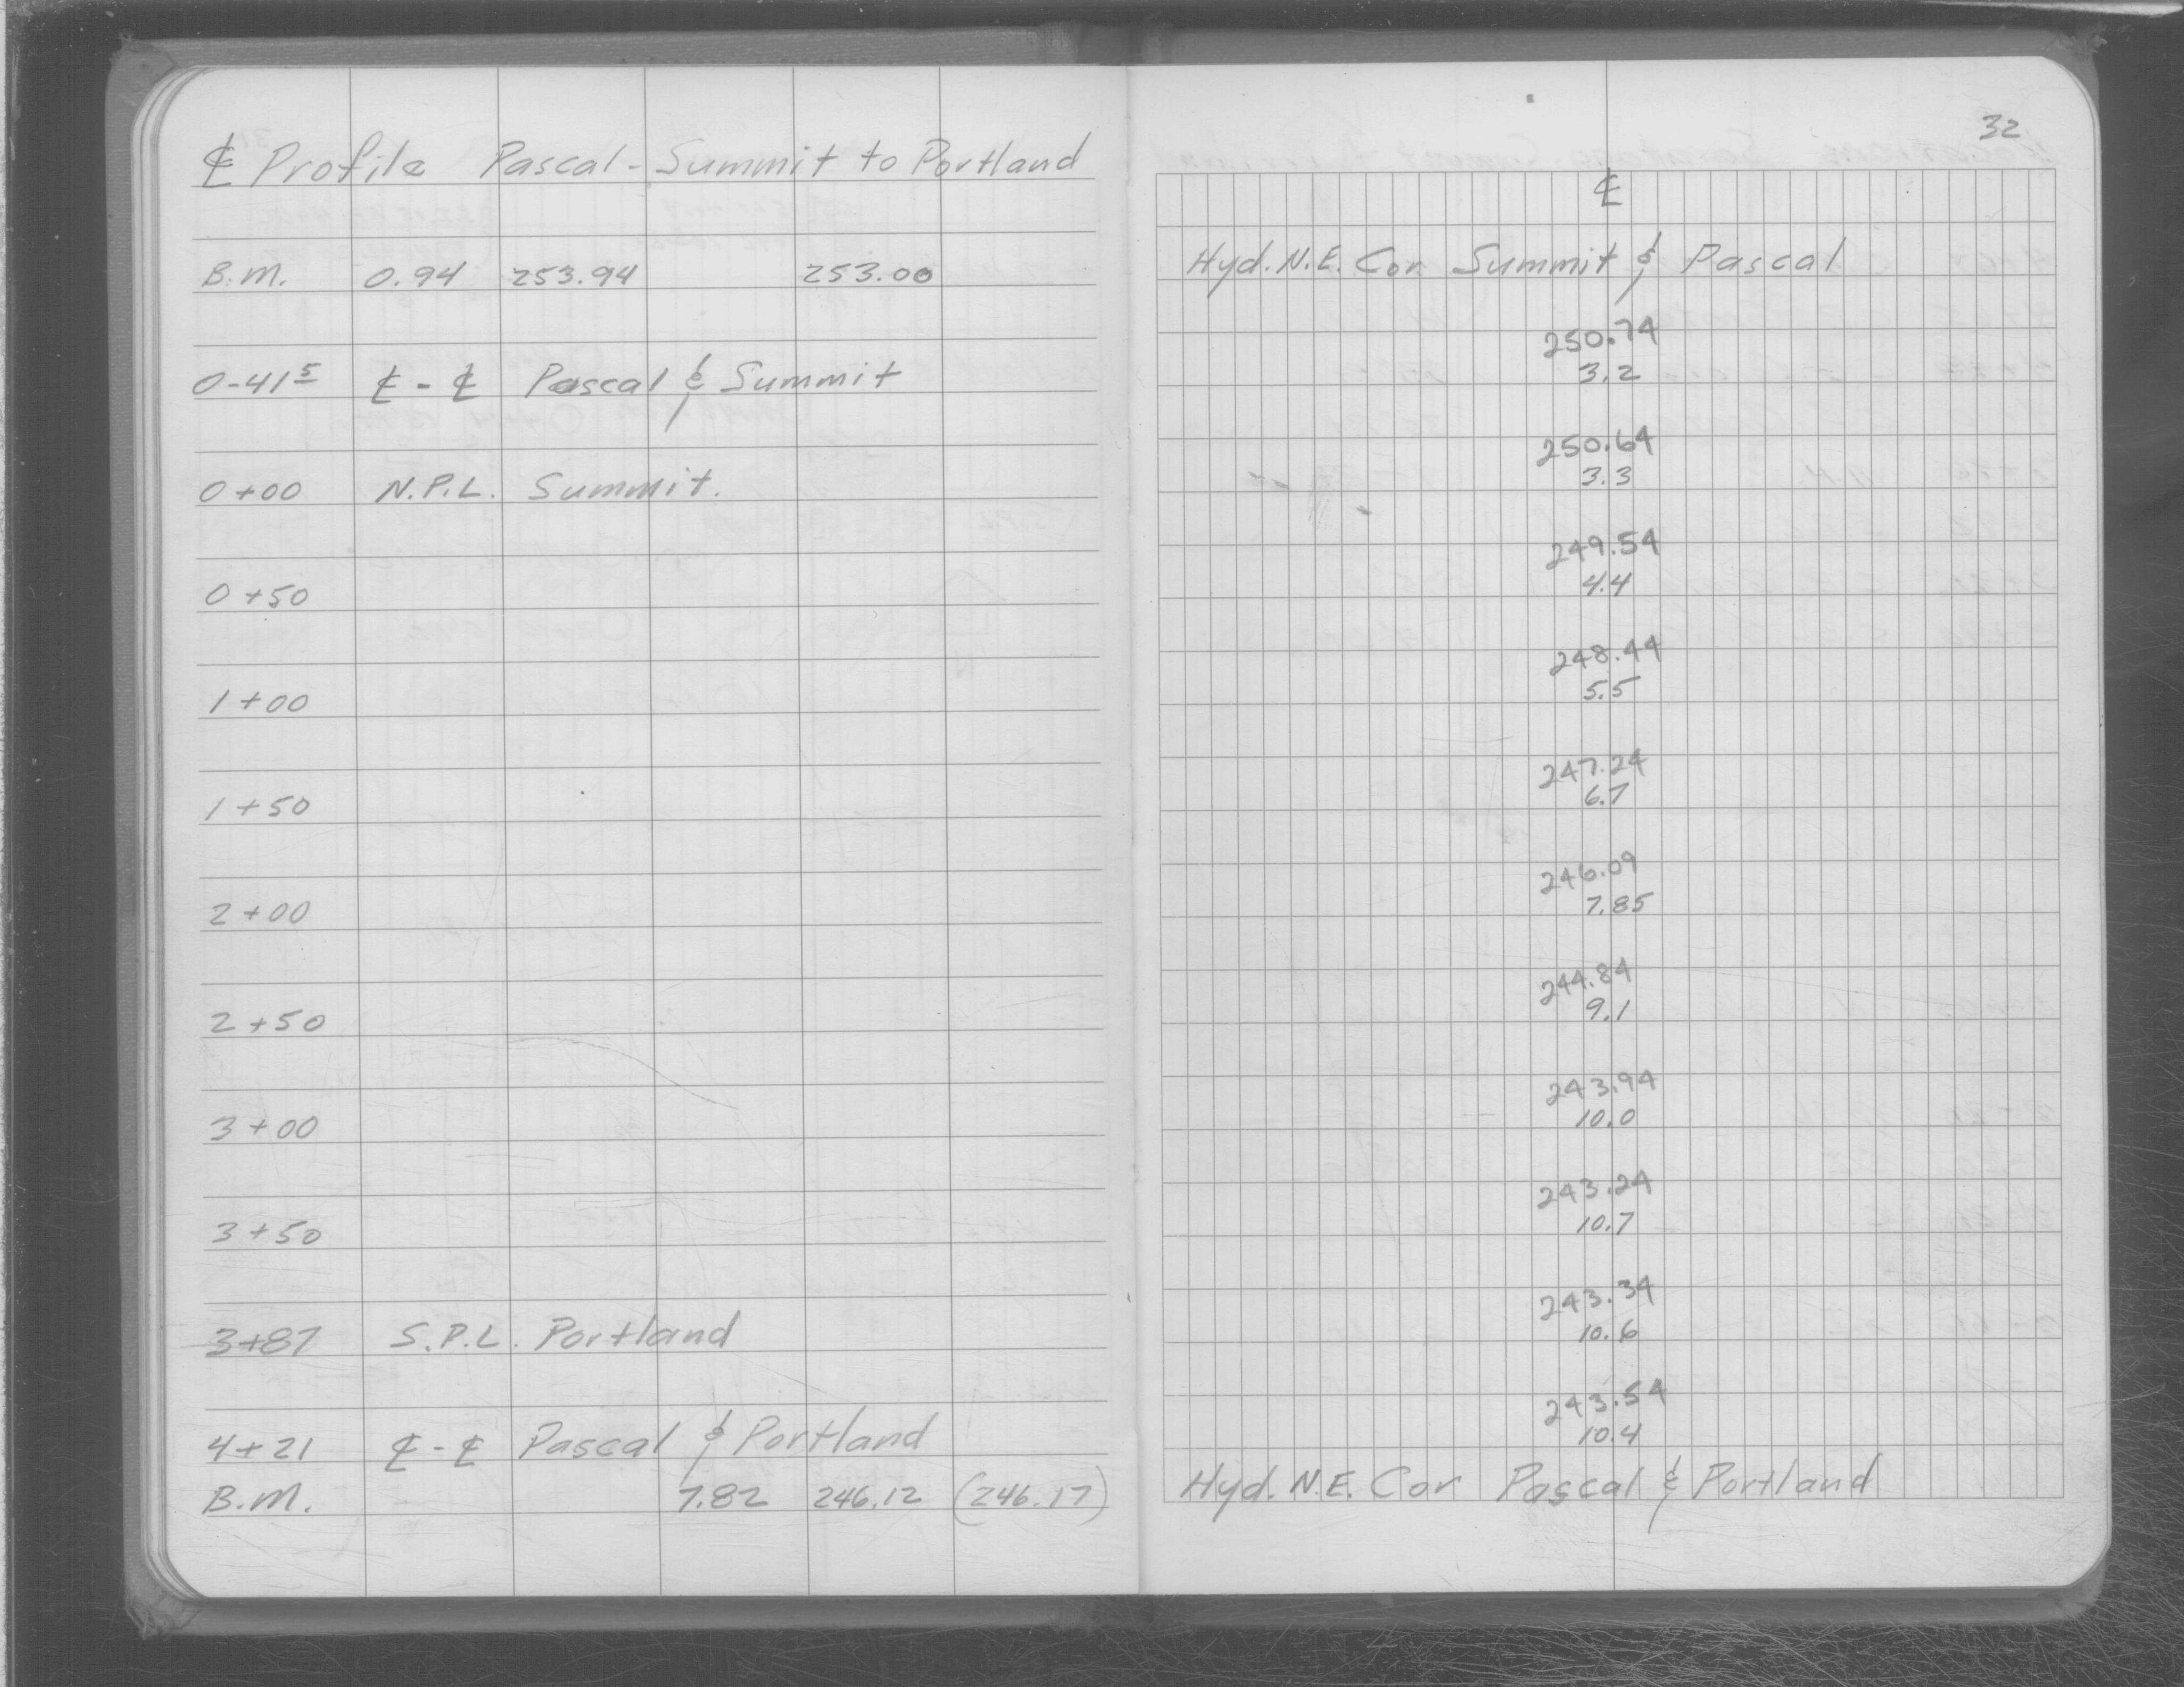 ℄ Profile Pascal - Summit to Portland
B.M. 0.94 253.94 253.00
0-41⁵ ℄ - ℄ Pascal & Summit
0+00 N.P.L. Summit.
0+50
1+00
1+50
2+00
2+50
3+00
3+50
3+87 S.P.L. Portland
4+21 ℄ - ℄ Pascal & Portland
B.M. 7.82 246.12 (246.17)
32
℄
Hyd. N.E. Cor Summit & Pascal
250.74
3.2
250.64
3.3
249.54
4.4
248.44
5.5
247.24
6.7
246.09
7.85
244.84
9.1
243.94
10.0
243.24
10.7
243.34
10.6
243.54
10.4
Hyd. N.E. Cor Pascal & Portland